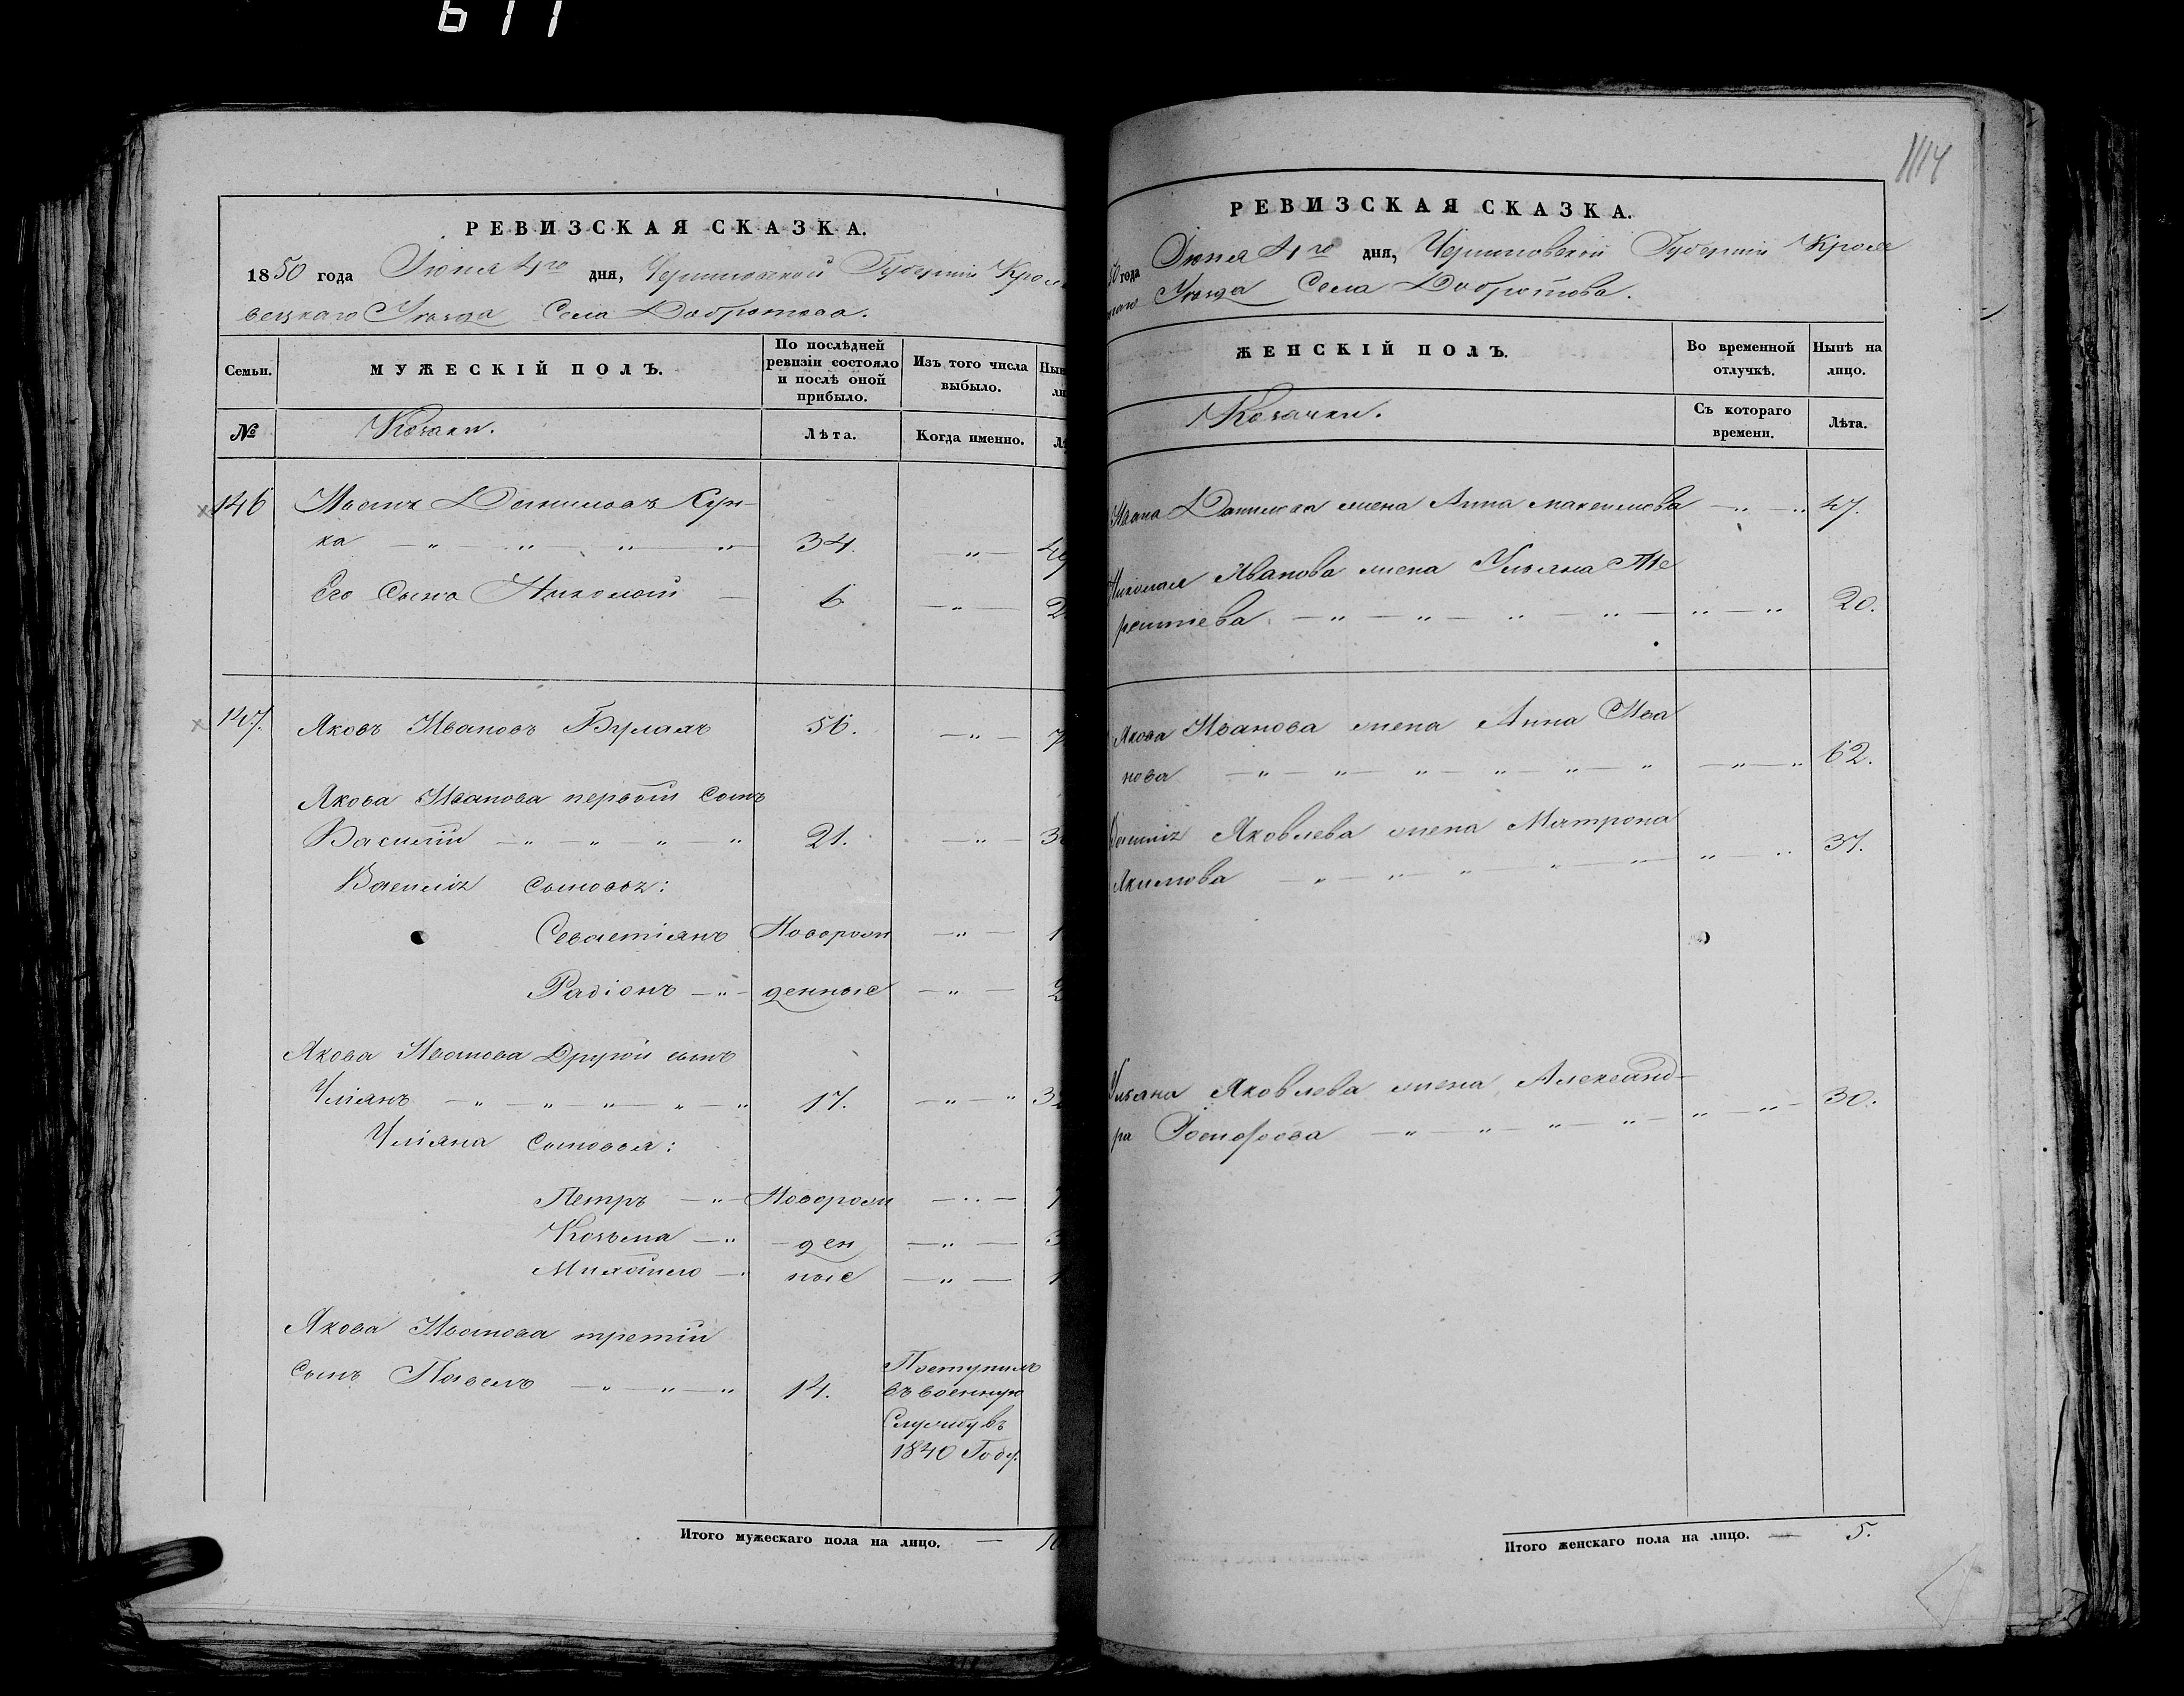 611
РЕВИЗСКАЯ СКАЗКА.
1850 года Июня 4го дня, Черниговской Губернiи Кроле
вецкаго Уѣзда Села Добротова.
Семьи.
МУЖЕСКІЙ ПОЛЪ.
По послѣдней
ревизіи состояло
и послѣ оной
прибыло.
Изъ того числа
выбыло.
№
Козаки.
Лѣта.
Когда именно.
146
Иванъ Даниловъ Кун-
ка 34.
Его Сынъ Николай 6
147.
Яковъ Ивановъ 56.
Якова Иванова первый Сынъ
Василій 21.
Василія Сыновья:
Севастіянъ Новорож
Радіонъ денные
Якова Иванова Другой сынъ
Уліянъ 17.
Уліяна Сыновья:
Петръ Новорож
Козьма ден
Михайло ные
Якова Иванова третій
Сынъ Павелъ 14.
Поступилъ
въ военную
Службу въ
1840 Году.
Итого мужескаго пола на лицо.
1114
РЕВИЗСКАЯ СКАЗКА.
50 года Июня 4го дня, Черниговской Губернiи Кроле
Уѣзда Села Добротова.
ЖЕНСКІЙ ПОЛЪ.
Во временной
отлучкѣ.
Нынѣ на
лицо.
Козачки.
Съ котораго
времени.
Лѣта.
Ивана Данилова жена Анна Максимова 47.
Николая Иванова жена Ульяна Те
рентіева 20.
Якова Иванова жена Анна Ива
нова 62.
Василія Яковлева жена Матрона
Якимова 37.
Ульяна Яковлева жена Александ-
ра 30.
Итого женскаго пола на лицо. 5.